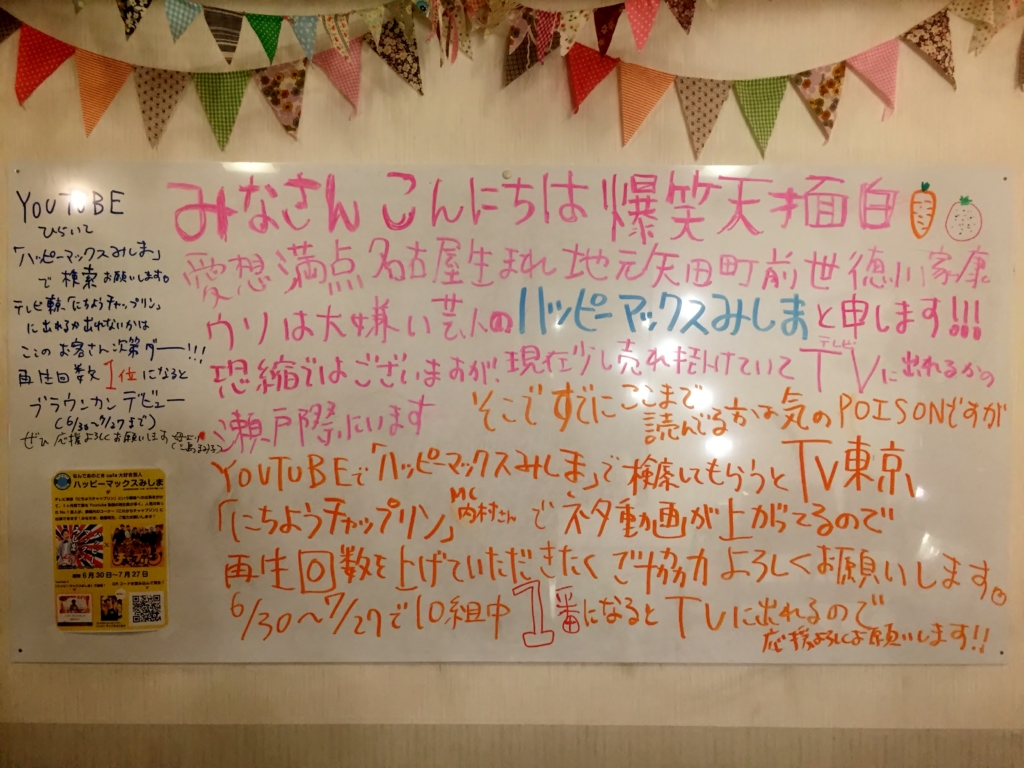 YOUTUBE
ひらいて
「ハッピーマックスみしま」
で 検索お願いします。
テレビ東京「にちようチャップリン」
に出れるか出れないかは
ここのお客さん次第ダー!!!
再生回数 1位になると
ブラウンカンデビュー
(6/30〜7/27まで)
ぜひ応援よろしくお願いします
みなさん こんにちは 爆笑天才面白
愛想満点名古屋生まれ地元矢田町前世徳川家康
ウソは大嫌い芸人のハッピーマックスみしまと申します!!!
恐縮ではございますが、現在少し売れ掛けていてTVに出れるかの
テレビ
瀬戸際にいます
そこですでにここまで
読んでる方は気のPOISONですが
YOUTUBEで「ハッピーマックスみしま」で検索してもらうとTV東京
「にちようチャップリン」MC内村さんでネタ動画が上がってるので
再生回数を上げていただきたくご協力よろしくお願いします。
6/30〜7/27で10組中1番になるとTVに出れるので
応援よろしくお願いします!!
なんでまのとき cafe 大好き芸人
ハッピーマックスみしま
6月30日〜7月27日